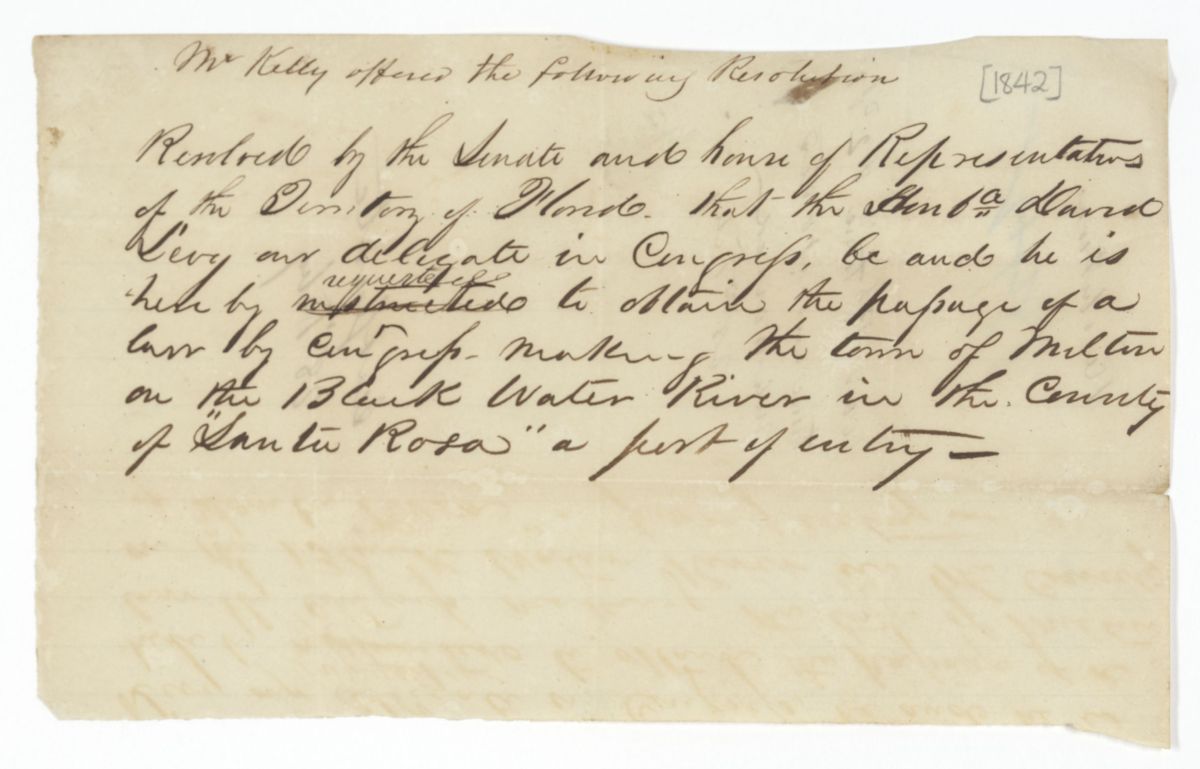 Mr Kelly offered the following Resolution
[1842]
Resolved by the Senate and house of Representatives
of the Territory of Florida. that the David
Levy our delegate in Congress, be and he is
requested
here by instructed to obtain the passage of a
law by Congress - making the town of Milton
on the Black Water River in the County
of "Santa Rosa" a port of entry —